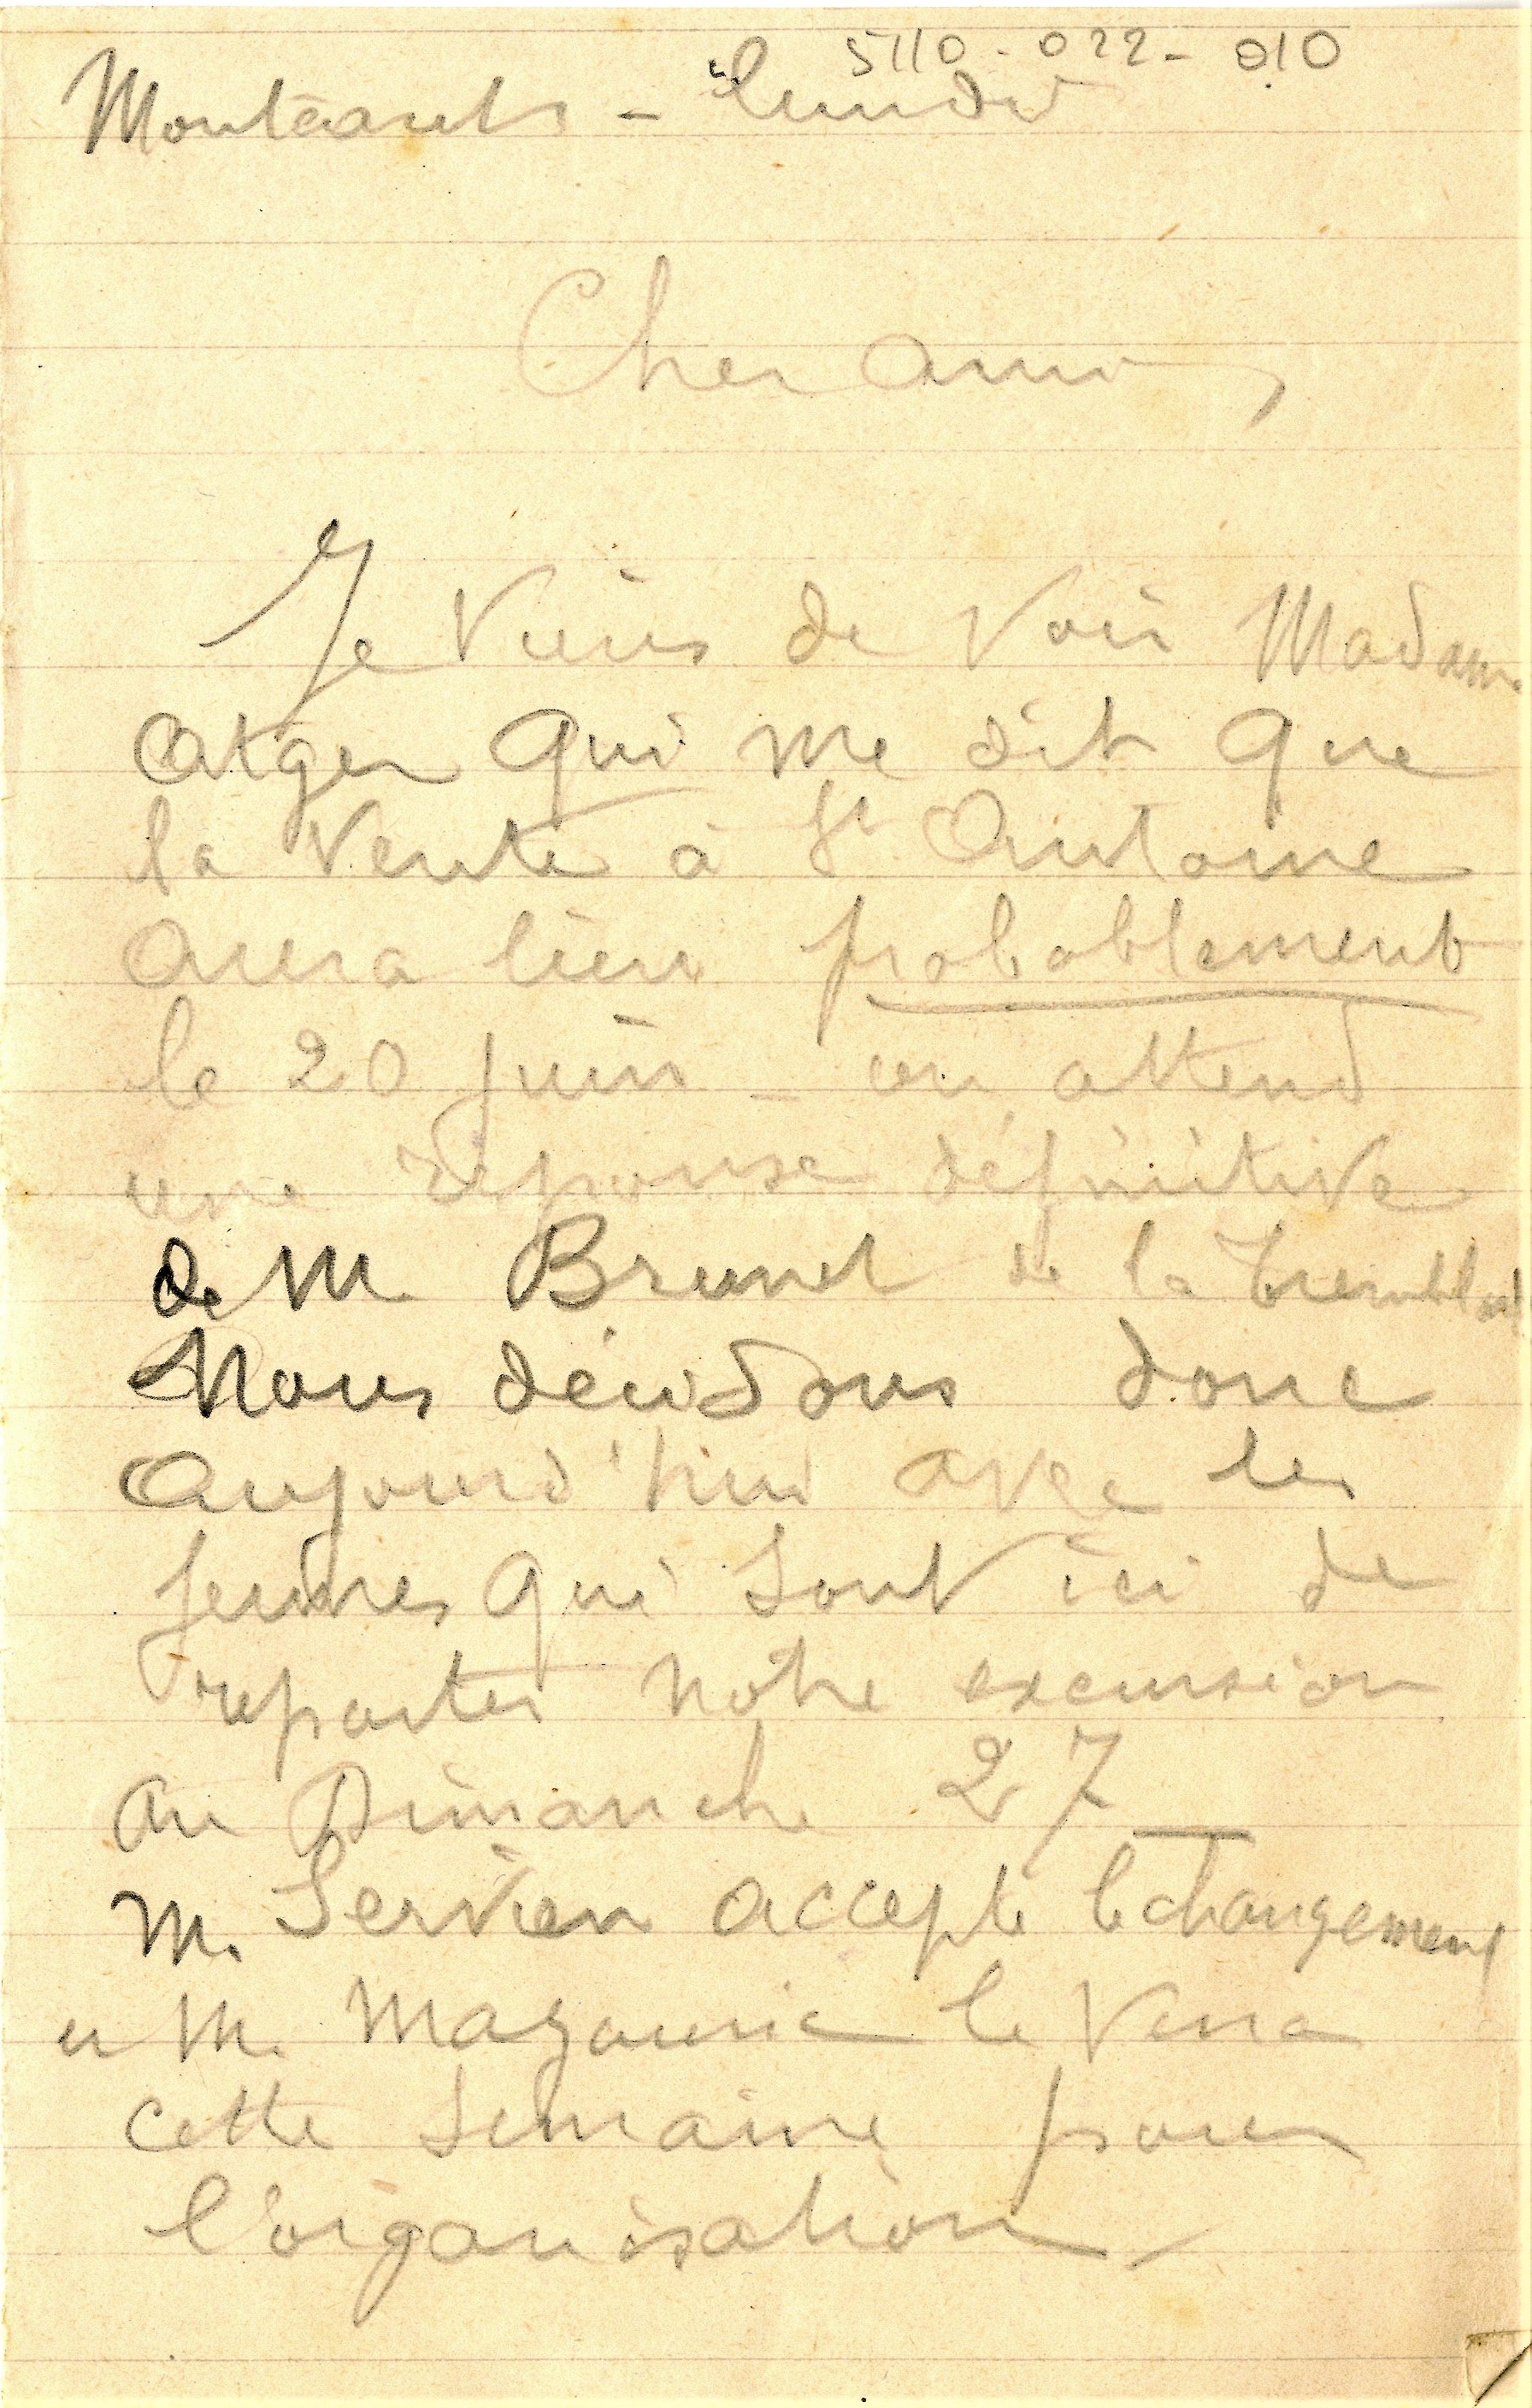 5110-022-010
Montcaret - lundi
Cher ami,
Je viens de voir Madame
Atger qui me dit que
la vente à St Antoine
aura lieu probablement
le 20 juin - on attend
une réponse définitive
de M. Brunet de la
Nous décidons donc
aujourd'hui avec les
jeunes qui sont ici de
reporter notre excursion
au Dimanche 27 _
M. Servien accepte le changement
et M. Mazauric le verra
cette semaine pour
l'organisation